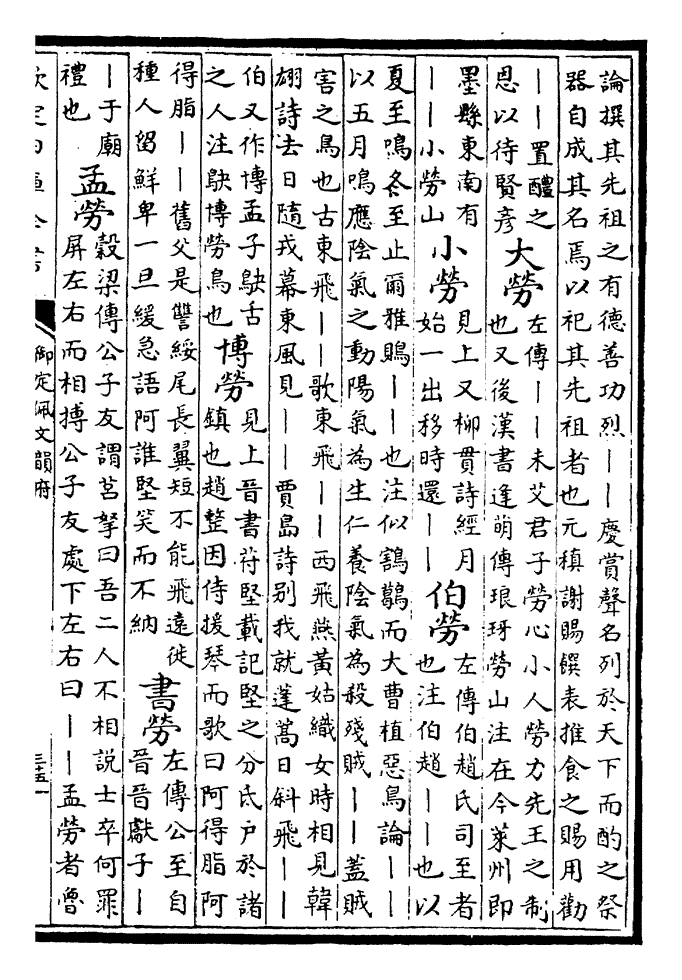 論撰其先祖之有德善功烈丨丨慶賞聲名列於天下而酌之祭
器自成其名焉以祀其先祖者也元稹謝賜饌表推食之賜用勸
丨丨置醴之
恩以待賢彦
大勞
左傳丨丨未艾君子勞心小人勞力先王之制
也又後漢書逢萌傳琅玡勞山注在今萊州即
墨縣東南有
丨丨小勞山
小勞
見上又柳貫詩經月
始一出移時還丨丨
伯勞
左傳伯趙氏司至者
也注伯趙丨丨也以
夏至鳴冬至止爾雅鵙丨丨也注似鶷鶡而大曹植惡鳥論丨丨
以五月鳴應陰氣之動陽氣為生仁養陰氣為殺殘賊丨丨蓋賊
害之鳥也古東飛丨丨歌東飛丨丨西飛燕黃姑織女時相見韓
翃詩去日隨戎幕東風見丨丨賈島詩别我就蓬蒿日斜飛丨丨
伯又作博孟子鴃舌
之人注鴃博勞鳥也
博勞
見上晉書苻堅載記堅之分氐户於諸
鎮也趙整因侍援琴而歌曰阿得脂阿
得脂丨丨舊父是讐綏尾長翼短不能飛遠徙
種人留鮮卑一旦緩急語阿誰堅笑而不納
書勞
左傳公至自
晉晉獻子丨
丨于廟
禮也
孟勞
穀梁傳公子友謂莒拏曰吾二人不相説士卒何罪
屏左右而相搏公子友處下左右曰丨丨孟勞者魯
欽定四庫全書
御定佩文韻府